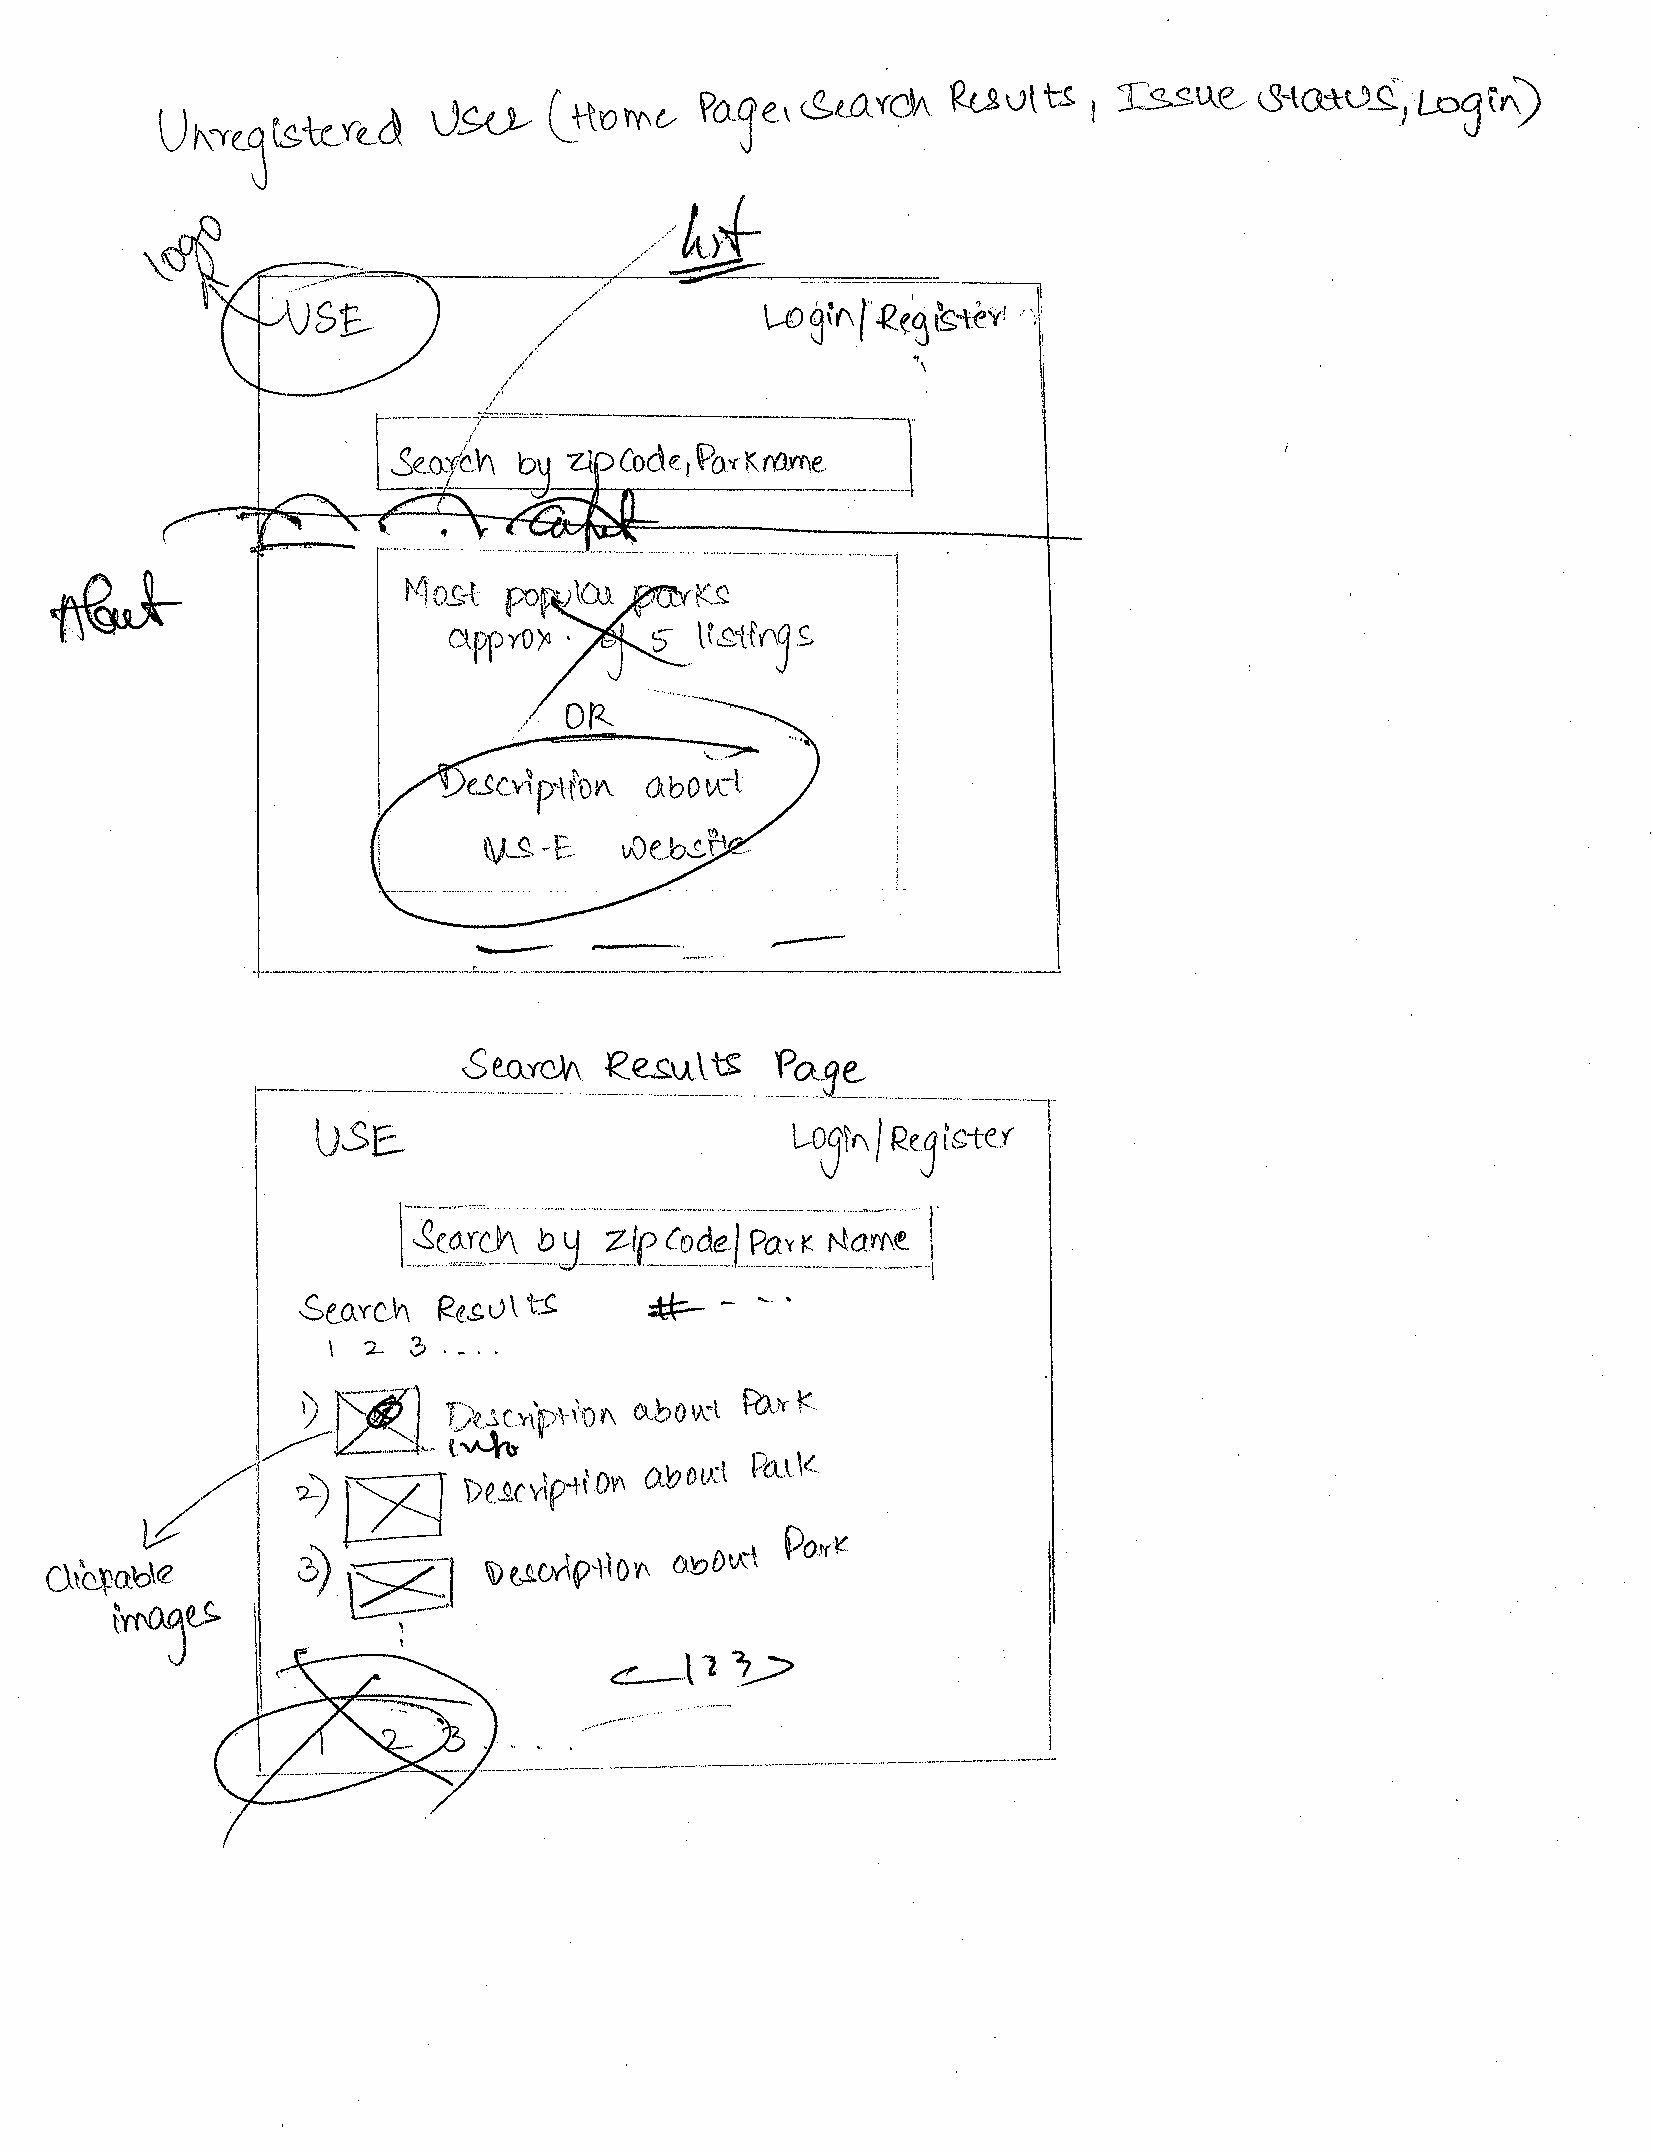 Unregistered User (Home Page, Search Results, Issue Status, Login)
logo
list
USE
Login/Register
Search by zipCode, Parkname
About
Most popular parks
approx. of 5 listings
OR
Description about
US-E website
Search Results Page
USE
Login/Register
Search by ZipCode/Park Name
Search Results # - - - .
1 2 3 . . . .
1) Description about Park
info
2) Description about Park
3) Description about Park
Clickable
images
< 1 2 3 >
1 2 3 . . . .